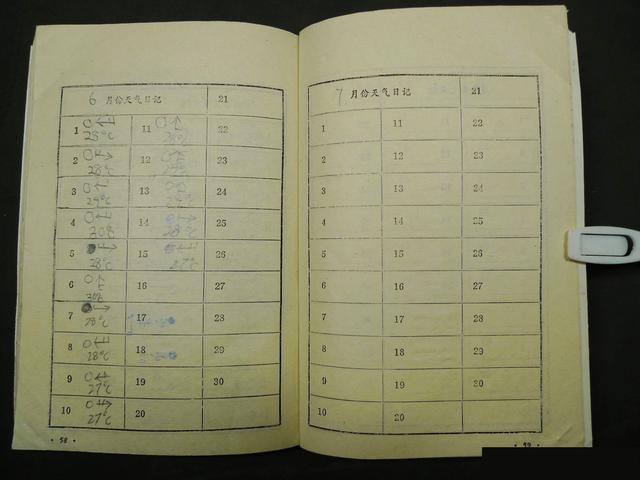 6 月份天气日记 21
1 28℃ 11 28℃ 22
2 28℃ 12 23
3 29℃ 13 24
4 30℃ 14 28℃ 25
5 28℃ 15 27℃ 26
6 30℃ 16 27
7 28℃ 17 28
8 28℃ 18 29
9 27℃ 19 30
10 27℃ 20
· 58 ·
7 月份天气日记 21
1 11 22
2 12 23
3 13 24
4 14 25
5 15 26
6 16 27
7 17 28
8 18 29
9 19 30
10 20